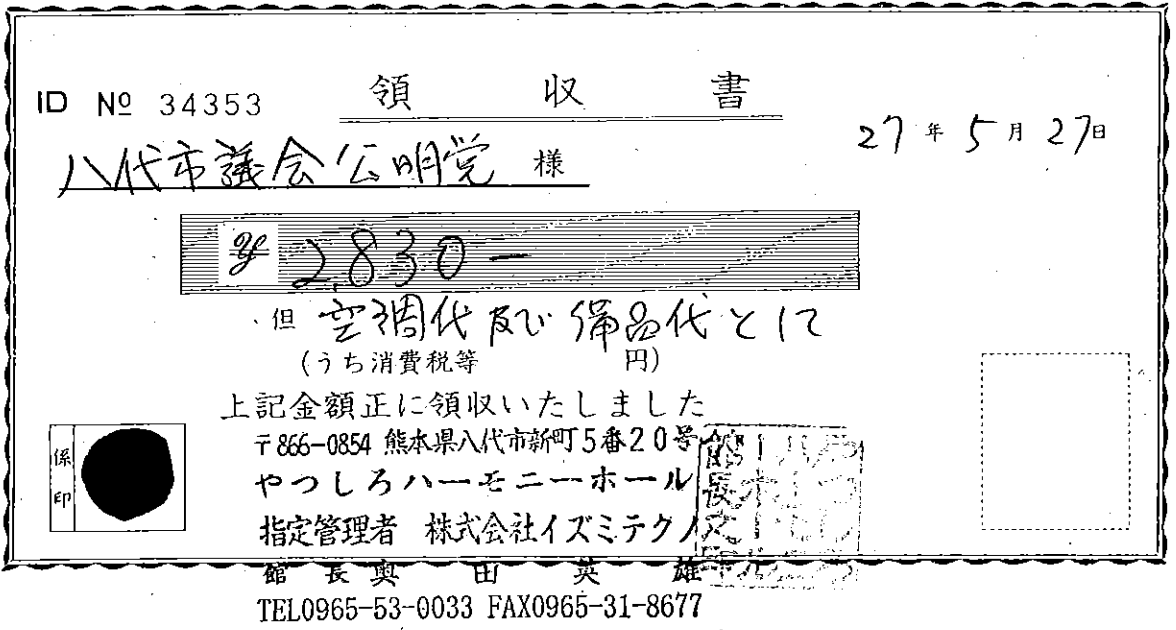 領収書
ID № 34353
27年5月27日
八代市議会公明党 様
¥2,830-
但 空調代及び備品代として
(うち消費税等 円)
上記金額正に領収いたしました
〒866-0854 熊本県八代市新町5番20号
やつしろハーモニーホール
指定管理者 株式会社イズミテクノ
館長 奥田英雄
TEL0965-53-0033 FAX0965-31-8677
係印